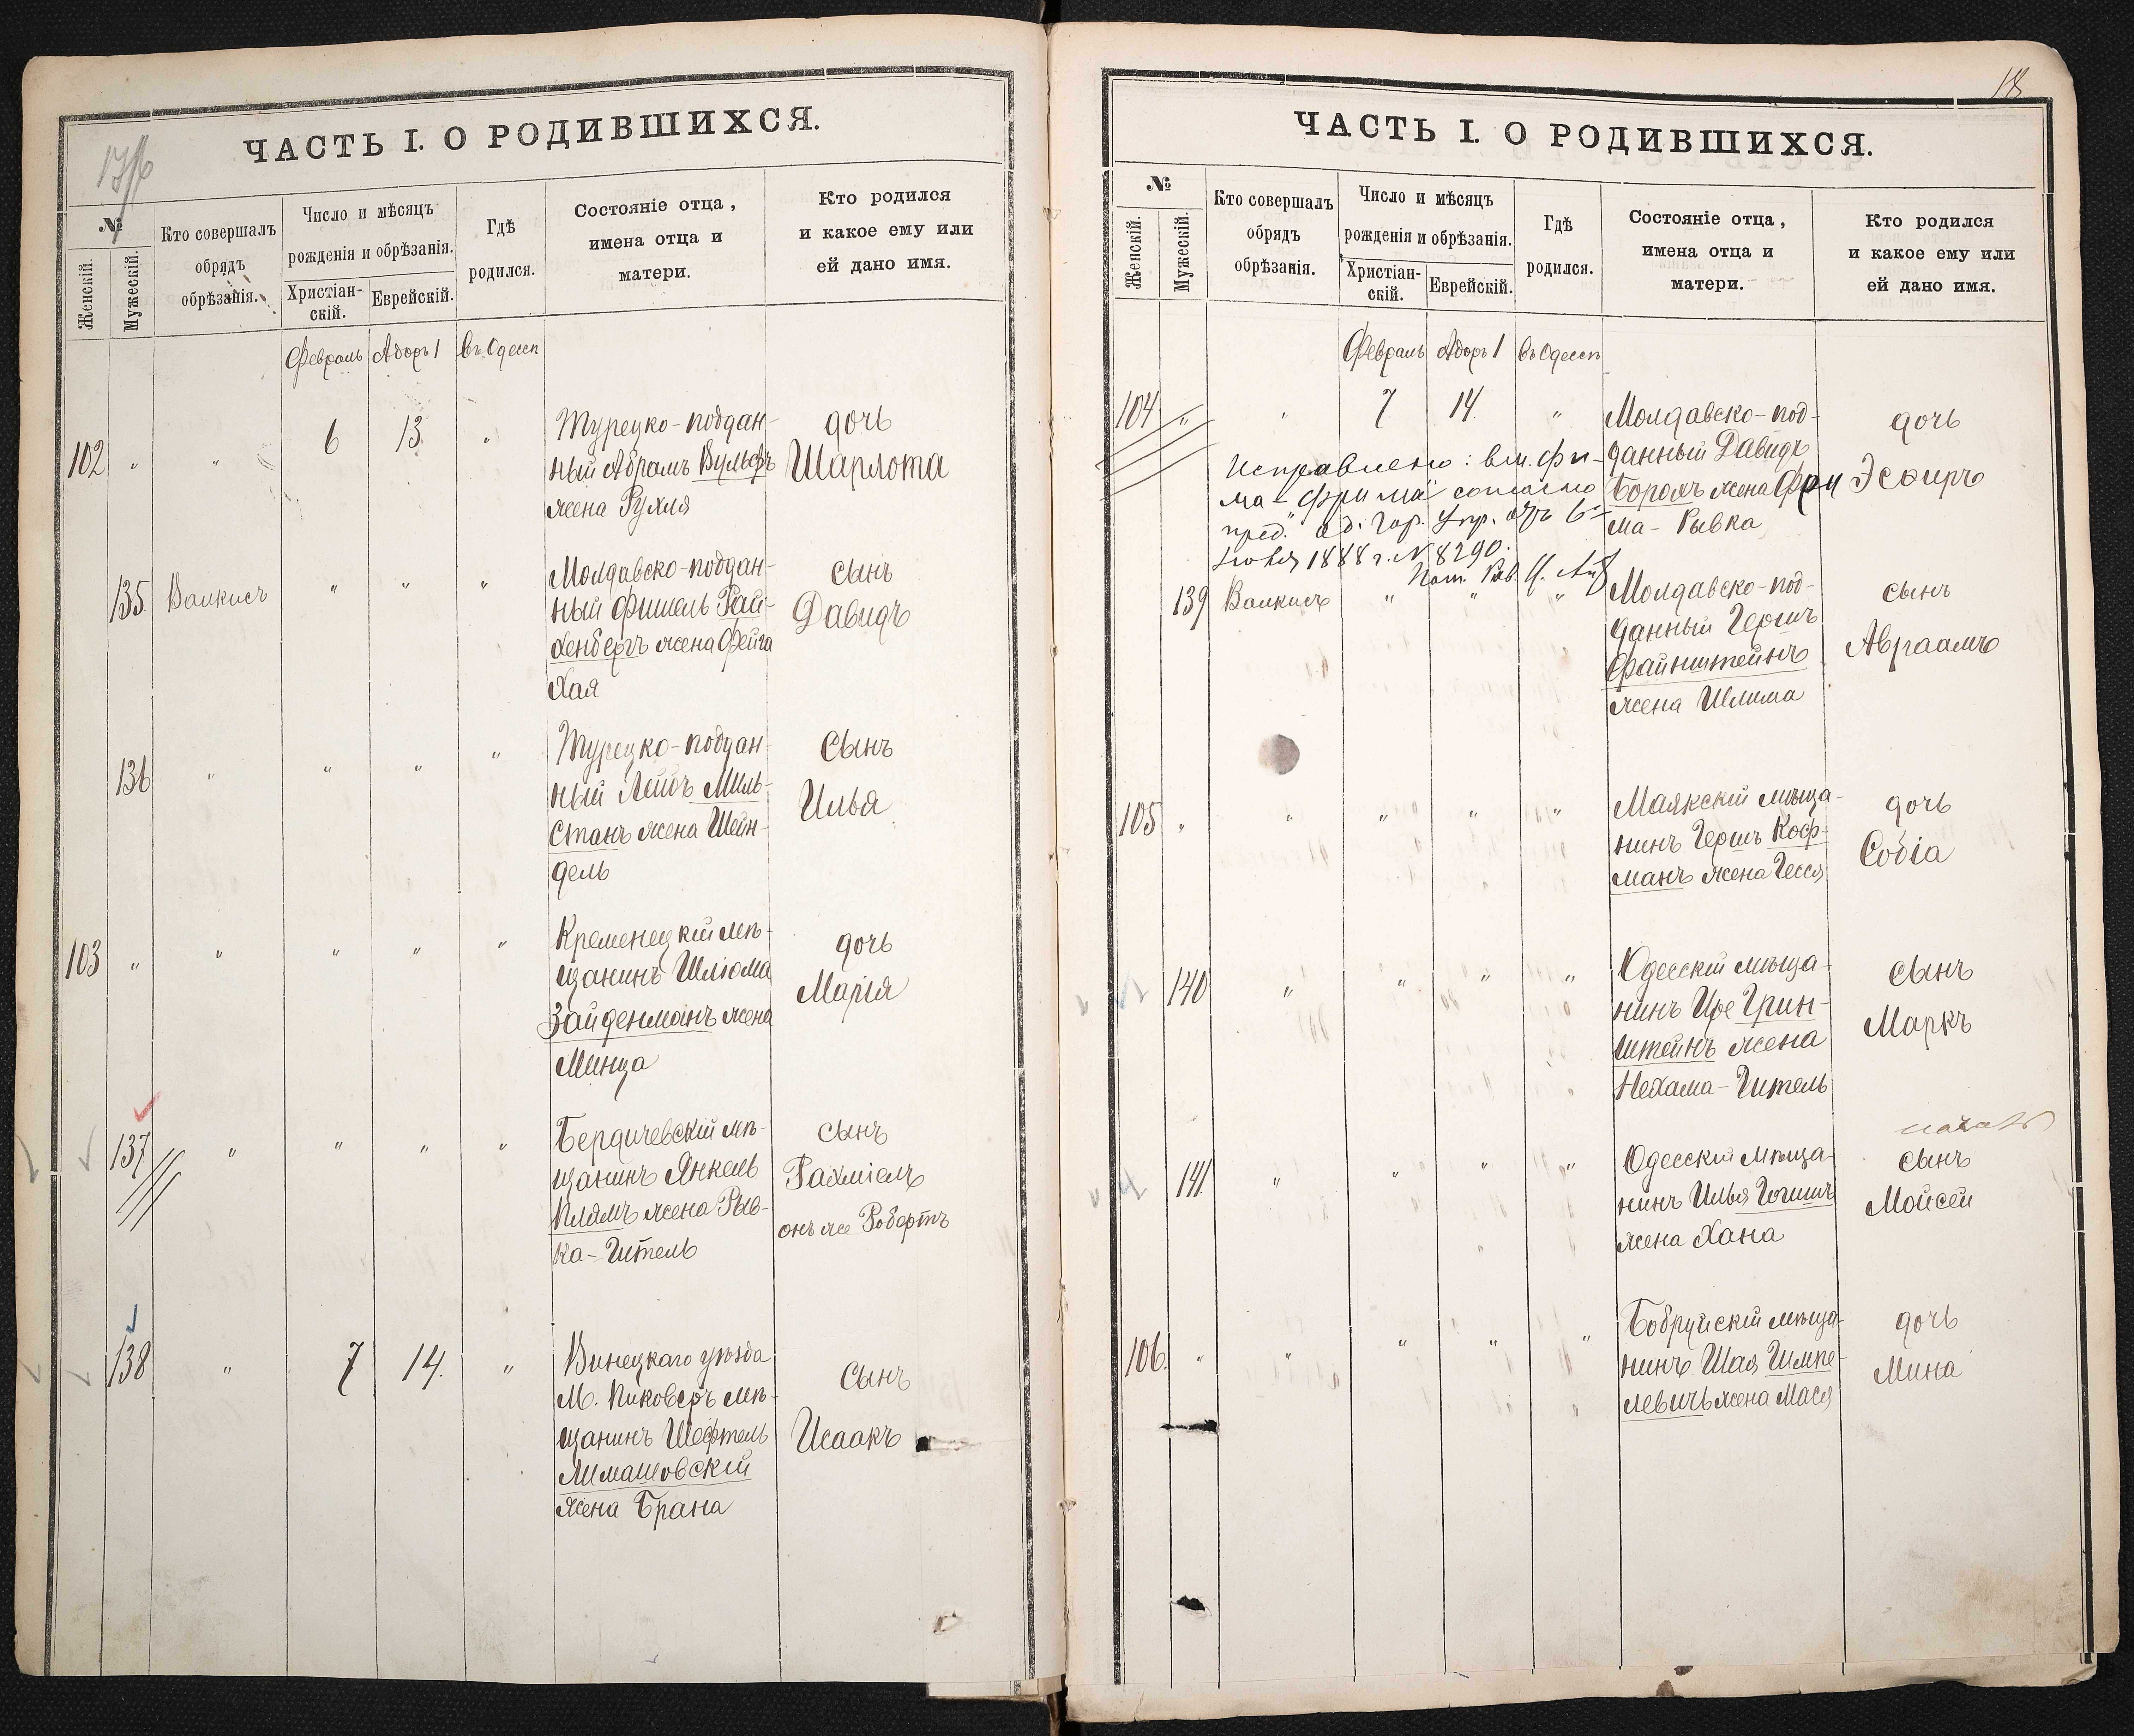 17/18
ЧАСТЬ I. О РОДИВШИХСЯ.
№
Женскій.
Мужескій.
Кто совершалъ
обрядъ
обрѣзанія.
Число и мѣсяцъ
рожденія и обрѣзанія.
Христіан-
скій.
Еврейскій.
Гдѣ
родился.
Состояніе отца,
имена отца и
матери.
Кто родился
и какое ему или
ей дано имя.
Февраль Адоръ 1 въ Одессѣ
102 " " 6 13 "
Турецко-поддан-
ный Абрамъ Вульфъ
жена Рухля
дочь
Шарлота
135 Валкисъ " " "
Молдавско-поддан-
ный Фишель Рай-
хенбергъ жена Фейга
Хая
сынъ
Давидъ
136 " " " "
Турецко-поддан-
ный Лейбъ Миль-
станъ жена Шейн-
дель
сынъ
Илья
103 " " " " "
Кременецкій мѣ-
щанинъ Шлiома
Зайденманъ жена
Минца
дочь
Марія
137 " " " "
Бердичевскій мѣ-
щанинъ Янкель
Плямъ жена Рыв-
ка-Гитель
сынъ
Рахміель
онъ же Робертъ
138 " 7 14. "
Винецкаго уѣзда
М. Пиковеръ мѣ-
щанинъ Шефтель
Лимашовскій
жена Брана
сынъ
Исаакъ
18
ЧАСТЬ I. О РОДИВШИХСЯ.
№
Женскій.
Мужескій.
Кто совершалъ
обрядъ
обрѣзанія.
Число и мѣсяцъ
рожденія и обрѣзанія.
Христіан-
скій.
Еврейскій.
Гдѣ
родился.
Состояніе отца,
имена отца и
матери.
Кто родился
и какое ему или
ей дано имя.
Февраль Адоръ 1 въ Одессѣ
104 " " 7 14. "
Молдавско-под-
данный Давидъ
Борохъ жена Фри
ма-Рывка
дочь
Эсфирь
Исправлено: вм. Фи-
ма-"Фрима" согласно
пред. Од. Гор. Упр. отъ 6го
1888 г. № 8290.
Пом. Рав.
139 Валкисъ " " "
Молдавско-под-
данный Гершъ
Файнштейнъ
жена Шлима
сынъ
Авраамъ
105 " " " " "
Маякскій мѣща-
нинъ Гершъ Коф-
манъ жена Гесся
дочь
Софіа
140 " " " "
Одесскій мѣща-
нинъ Іое Грин-
штейнъ жена
Нехама-Гитель
сынъ
Маркъ
141. " " " "
Одесскій мѣща-
нинъ Илья
жена Хана
сынъ
Мойсей
106. " " " " "
Бобруйскій мѣща-
нинъ Шая Шмпе-
левичъ жена Мася
дочь
Мина